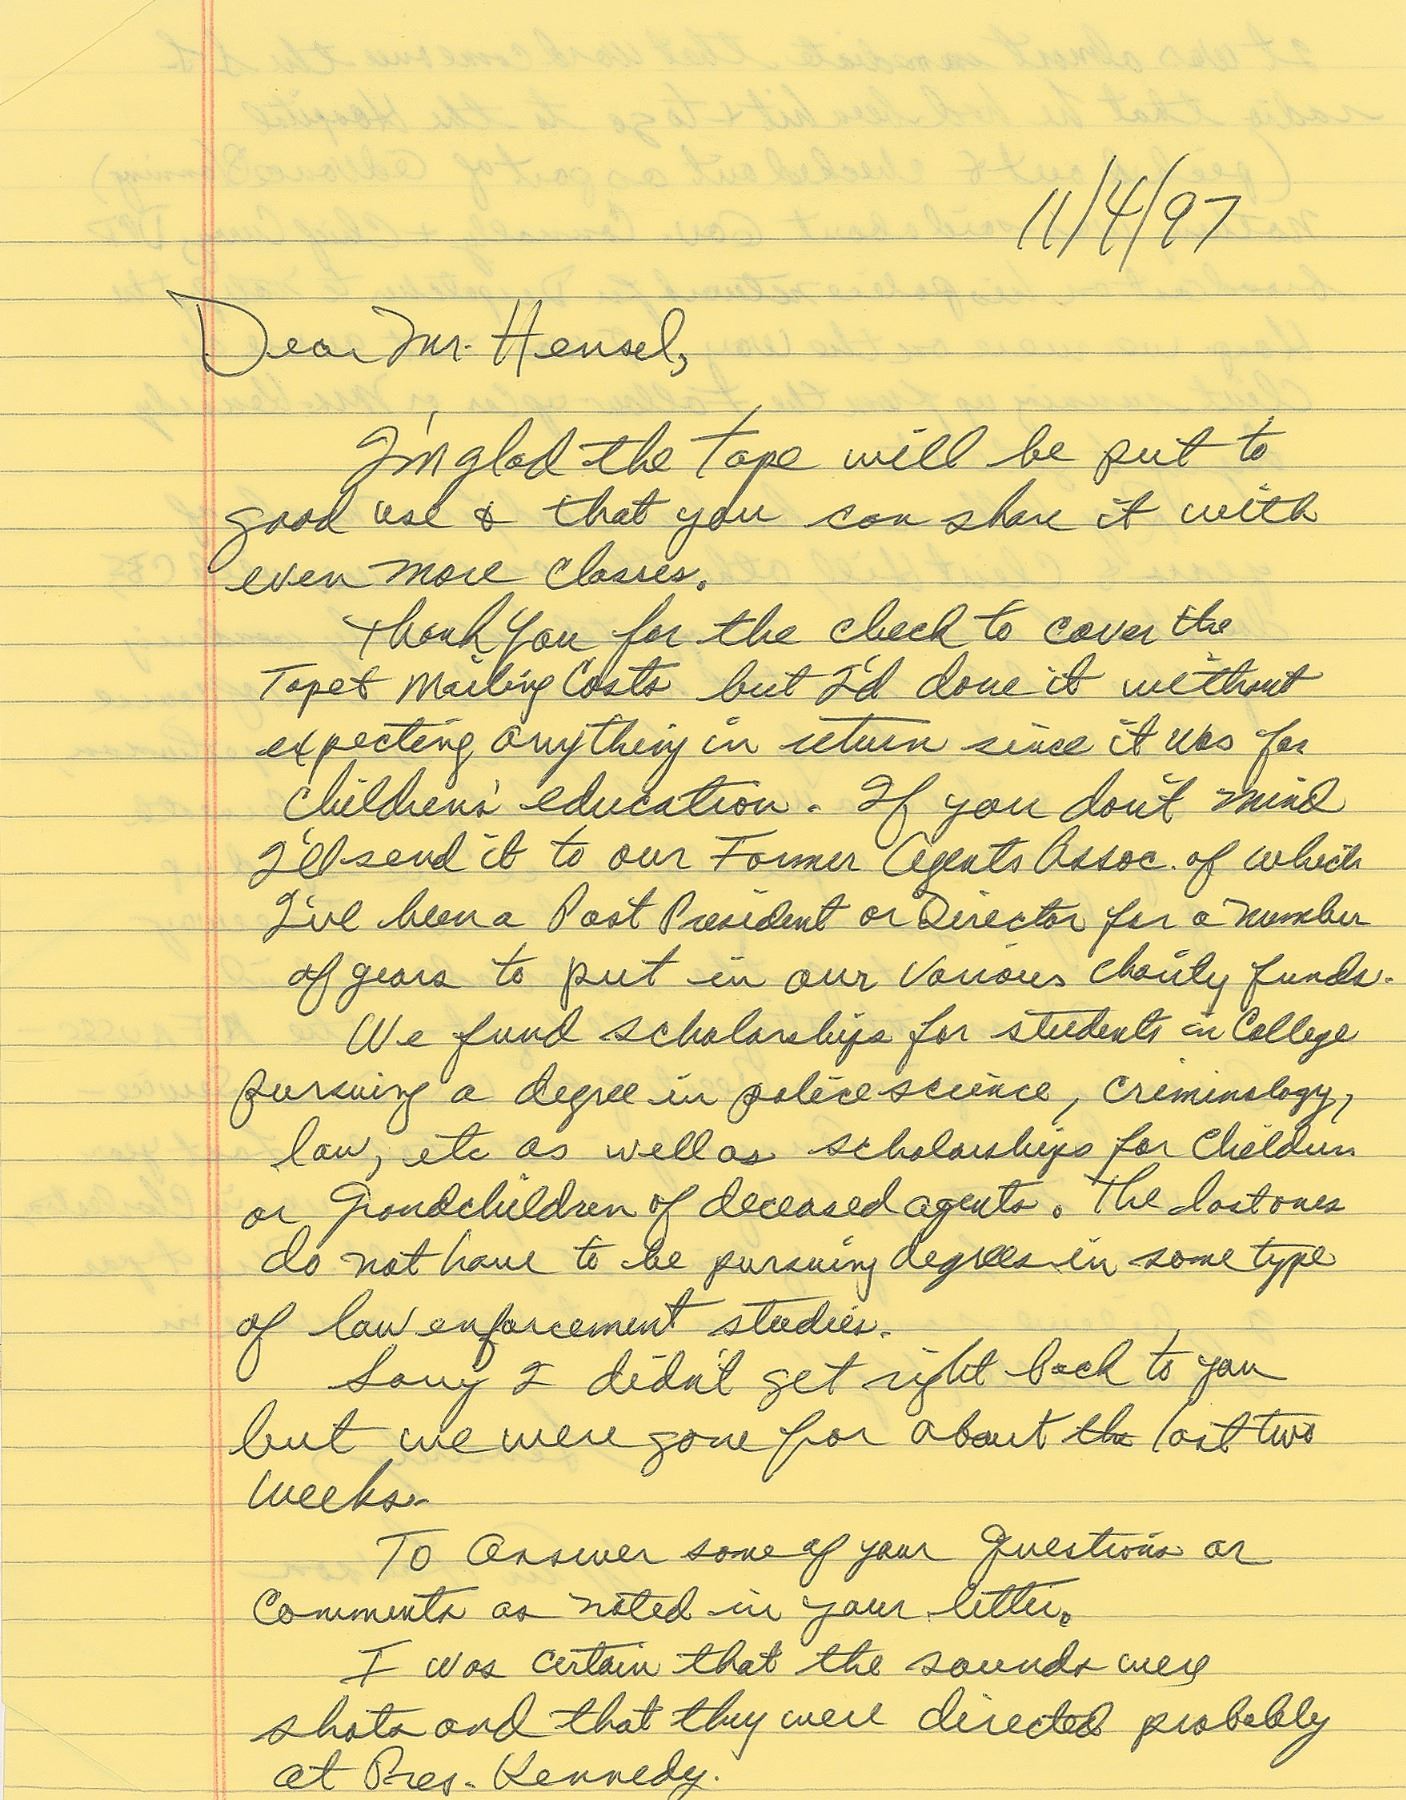 11/4/97
Dear Mr. Hensel,
I'm glad the tape will be put to
good use & that you can share it with
even more classes.
Thank you for the check to cover the
Tape & Mailing Costs but I'd done it without
expecting anything in return since it was for
Childrens' education. If you don't mind
I'll send it to our Former Agents Assoc. of which
I've been a Past President or Director for a number
of years to put in our various charity funds.
We fund scholarships for students in College
pursuing a degree in police science, criminology,
law, etc as well as scholarships for Children
or Grandchildren of deceased agents. The last ones
do not have to be pursuing degrees in some type
of law enforcement studies.
Sorry I didn't get right back to you
but we were gone for about the last two
weeks.
To Answer some of your Questions or
Comments as noted in your letter.
I was certain that the sounds were
shots and that they were directed probably
at Pres. Kennedy.